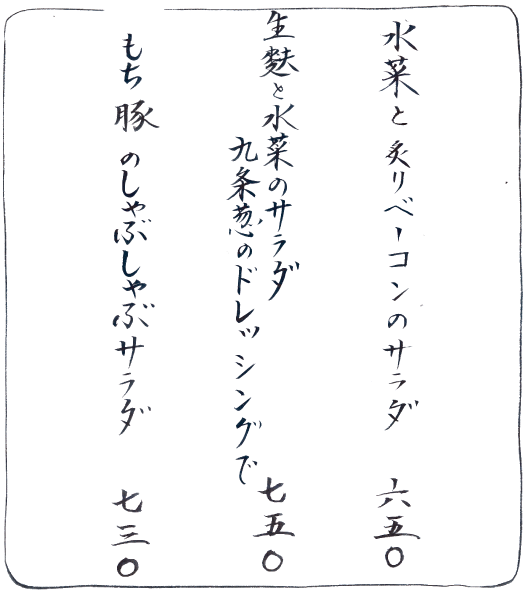 水菜と炙りベーコンのサラダ 六五〇
生麩と水菜のサラダ
九条葱のドレッシングで 七五〇
もち豚のしゃぶしゃぶサラダ 七三〇